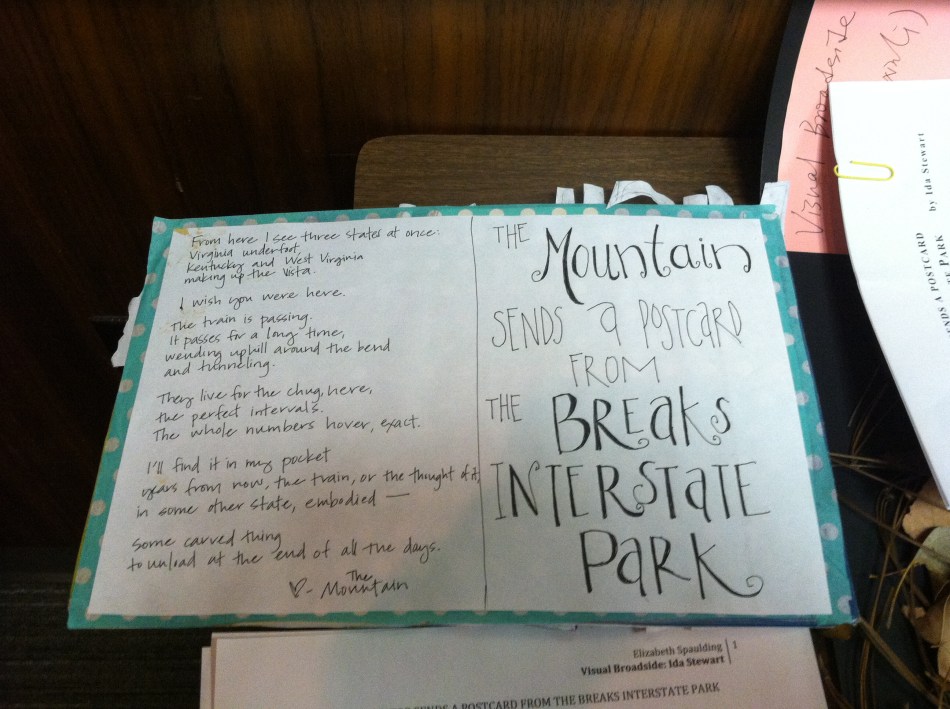 From here I see three states at once:
Virginia underfoot,
Kentucky and West Virginia
making up the vista.
I wish you were here.
The train is passing.
It passes for a long time,
wending uphill around the bend
and tunneling.
They live for the chug, here,
the perfect intervals.
The whole numbers hover, exact.
I'll find it in my pocket
years from now, the train, or the thought of it,
in some other state, embodied —
some carved thing
to unload at the end of all the days.
♡ - The Mountain
THE
Mountain
SENDS a POSTCARD
FROM
THE BREaKS
INTERSTaTE
PaRK
Visual Broadside
by Ida Stewart
A POSTCARD
PARK
Elizabeth Spaulding | 1
Visual Broadside: Ida Stewart
SENDS A POSTCARD FROM THE BREAKS INTERSTATE PARK